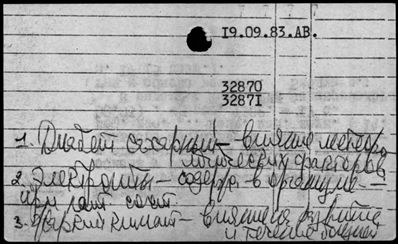 19.09.83.АВ.
32870
32871
1. Диабет сахарный – влияние метеоро
логических факторов
2. Электролиты – содерж. в организме –
при пат. сост.
3. Жаркий климат – влияние на развитие
и течение болезней